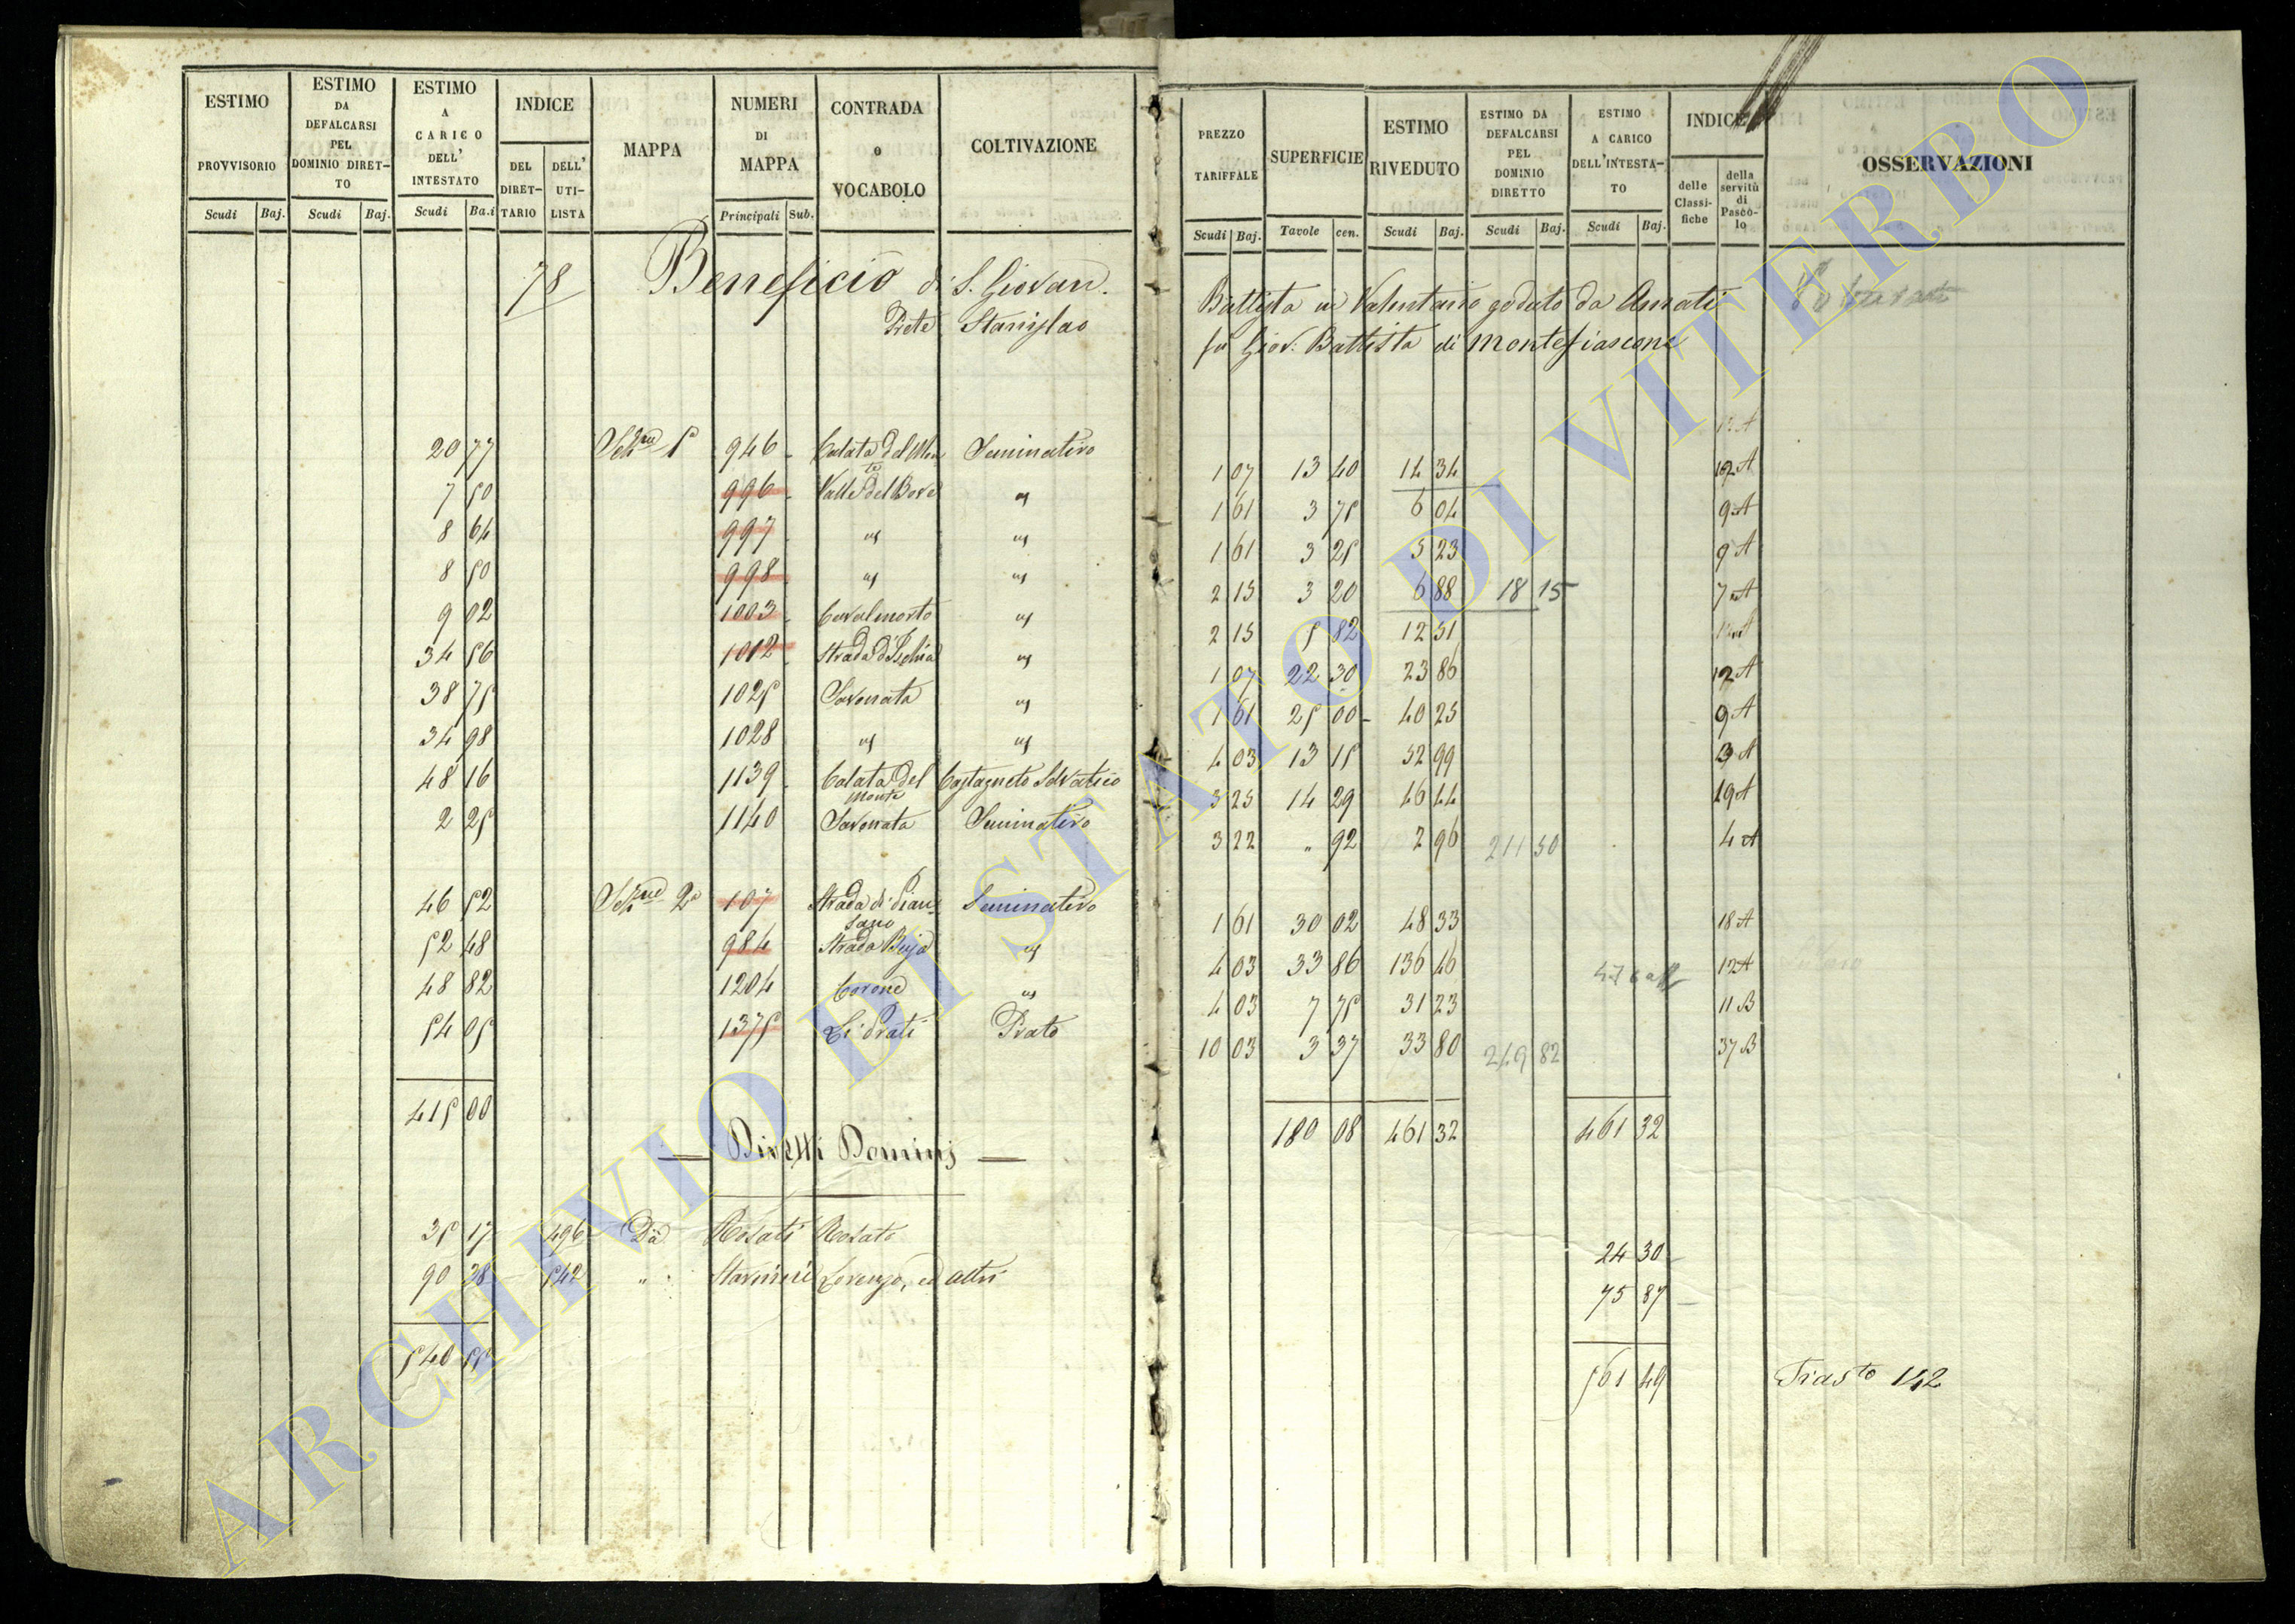 ESTIMO PROVVISORIO Scudi Baj.
ESTIMO DA DEFALCARSI PEL DOMINIO DIRETTO Scudi Baj.
ESTIMO A CARICO DELL' INTESTATO Scudi Ba.i
INDICE DEL DIRETTARIO DELL' UTILISTA
MAPPA
NUMERI DI MAPPA Principali Sub.
CONTRADA o VOCABOLO
COLTIVAZIONE
PREZZO TARIFFALE Scudi Baj.
SUPERFICIE Tavole cen.
ESTIMO RIVEDUTO Scudi Baj.
ESTIMO DA DEFALCARSI PEL DOMINIO DIRETTO Scudi Baj.
ESTIMO A CARICO DELL'INTESTATO Scudi Baj.
INDICE delle Classifiche della servitù di Pascolo
OSSERVAZIONI
78 Beneficio di S. Giovan. Battista in Valentano goduto da Amati
Prete Stanislao fu Giov. Battista di Montefiascone
12 A
20 77 Sez.ne 1a 946 Calata del Monte Seminativo 1 07 13 40 14 34 12 A
7 50 996 Valle del Bove " 1 61 3 75 6 04 9 A
8 64 997 " " 1 61 3 25 5 23 9 A
8 50 998 " " 2 15 3 20 6 88 18 15 7 A
9 02 1003 Cavalmorto " 2 15 5 82 12 51
34 56 1012 Strada d'Ischia " 1 07 22 30 23 86 12 A
38 75 1025 Savonata " 1 61 25 00 40 25 9 A
34 98 1028 " " 4 03 13 15 52 99 3 A
48 16 1139 Calata del Monte Castagneto Selvatico 3 25 14 29 46 44 19 A
2 25 1140 Savonata Seminativo 3 22 " 92 2 96 211 50 4 A
46 52 Sez.ne 2a 107 Strada di Piansano Seminativo 1 61 30 02 48 33 18 A
52 48 984 Strada Buja " 4 03 33 86 136 46 12 A
48 82 1204 Corone " 4 03 7 75 31 23 11 B
54 05 1375 Li Prati Prato 10 03 3 37 33 80 249 82 37 B
415 00 180 08 461 32 461 32
Diretti Dominj
35 17 496 Da Rosati Rosato 24 30
90 38 542 " Starnini Lorenzo, ed altri 75 87
540 55 561 49 Trasto 142
ARCHIVIO DI STATO DI VITERBO